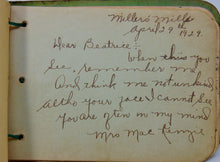 Miller's Mills
April 29th 1929.
Dear Beatrice:
When this you
see, remember me
And think me not unkind,
altho your face I cannot see
You are often in my mind
Mrs Mac Kenzie